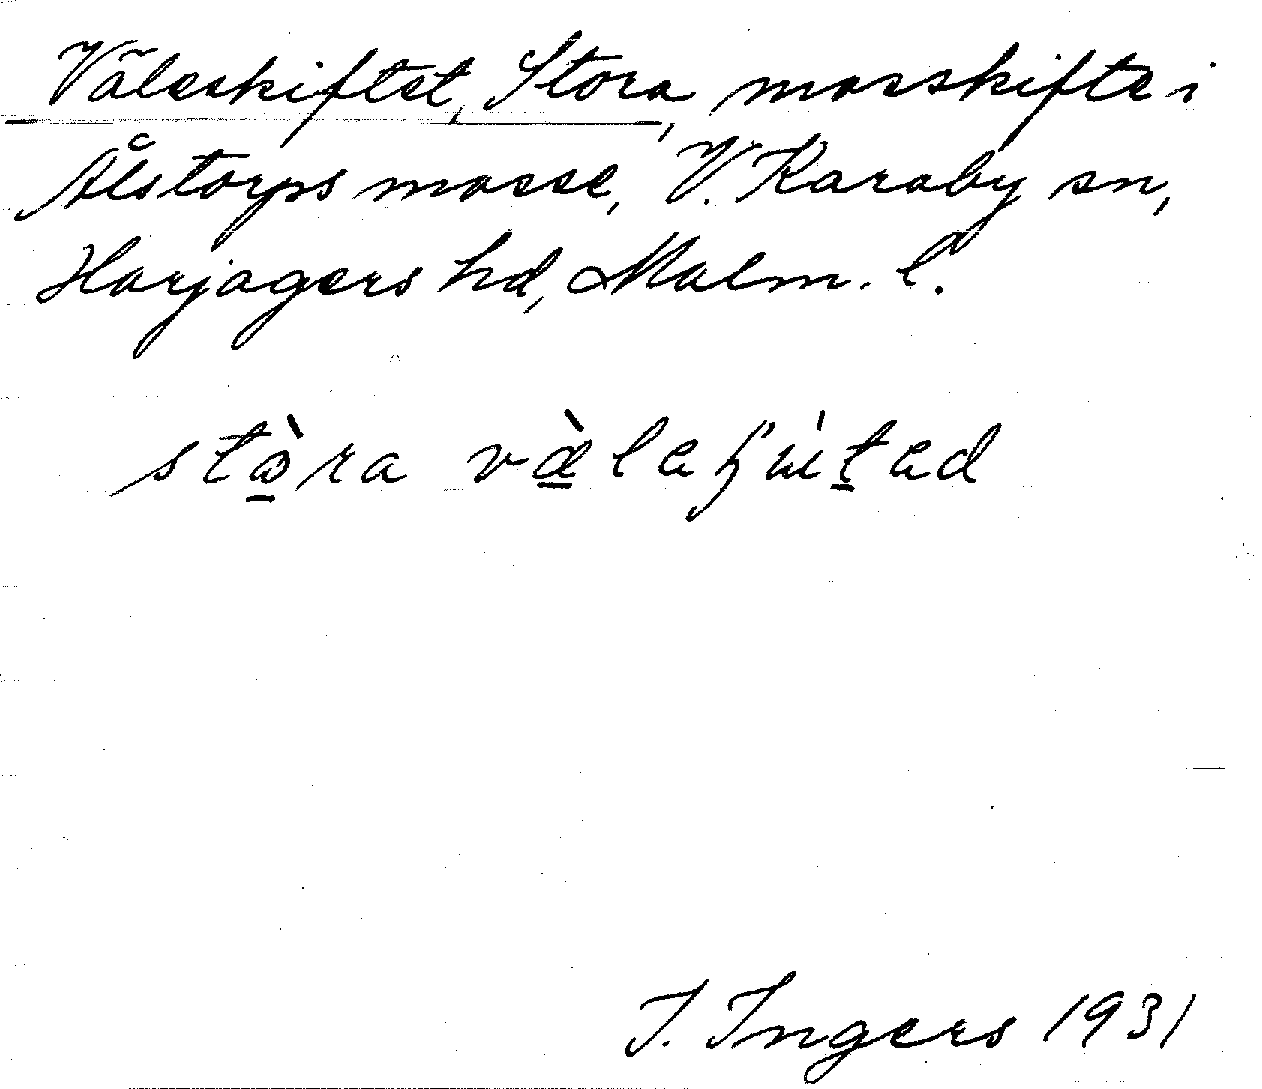 Väleskiftet, Stora, mosskifte i
Ålstorps mosse, V. Karaby sn,
Harjagers hd, Malm. l.
I. Ingers 1931